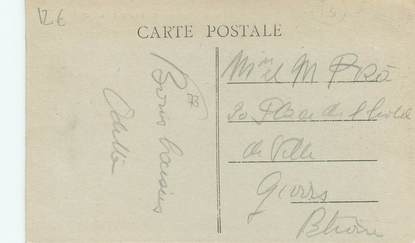 12€
CARTE POSTALE
Bons baisers
Odette
Mme et M
20 Place de l'
de Ville
Givors
Rhône